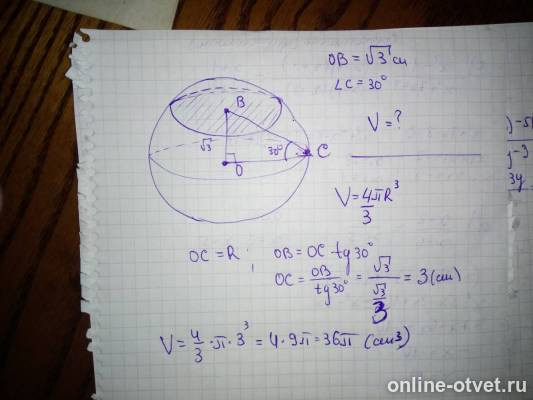 OB = √3 см
∠C = 30°
B
V = ?
√3
30°
C
O
V = 4/3 πR³
OC = R ; OB = OC · tg 30°
OC = OB / tg 30° = √3 / (√3/3) = 3 (см)
V = 4/3 · π · 3³ = 4 · 9π = 36π (см3)
3y
online-otvet.ru